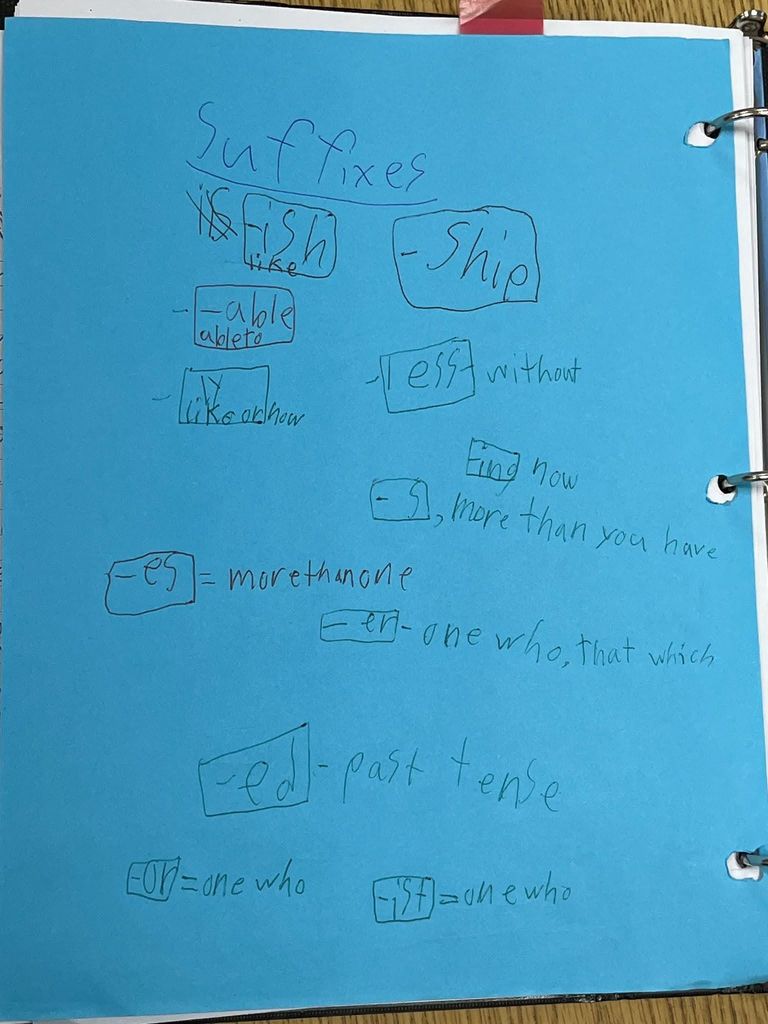 Suffixes
-ish
like
-ship
- -able
able to
- ly
like or how
-less without
-ing now
-s, more than you have
-es = more than one
-er - one who, that which
-ed - past tense
-or = one who
-ist = one who